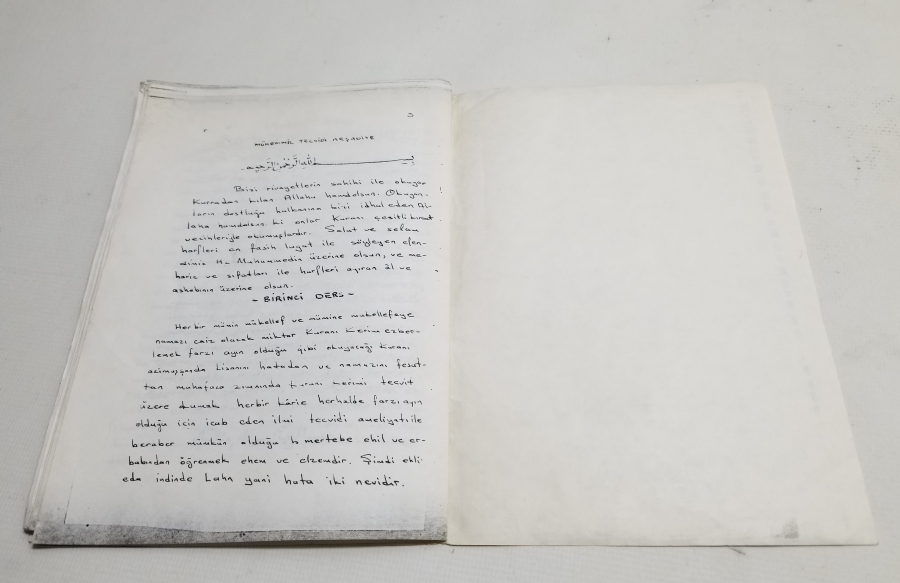 3
MÜKEMMEL TECVİDİ REŞADİYE
بسم الله الرحمن الرحيم
Bizi rivayetlerin sahihi ile okuyan
Kurradan kılan Allaha hamdolsun. Okuyan-
ların dostluğu halkasına bizi idhal eden Al-
laha hamdolsun ki onlar Kuranı çeşitli kıraat
vecihleriyle okumuşlardır. Salat ve selam
harfleri en fasih lugat ile söyleyen efen-
dimiz Hz Muhammedin üzerine olsun, ve me-
haric ve sıfatları ile harfleri ayıran âl ve
ashabının üzerine olsun.
- BİRİNCİ DERS -
Her bir mümin mükellef ve mümine mukellefeye
namazı caiz olacak miktar Kuranı Kerim ezber-
lemek farzı ayın olduğu gibi okuyacağı Kuranı
azimuşşanda Lisanını hatadan ve namazını fesat-
tan muhafaza zımnında Kuranı Kerimi tecvit
üzere okumak herbir kârie herhalde farzı ayın
olduğu için icab eden ilmi tecvidi ameliyatı ile
beraber mümkün olduğu mertebe ehil ve er-
babından öğrenmek ehem ve elzemdir. Şimdi ehli
eda indinde Lahn yani hata iki nevidir.